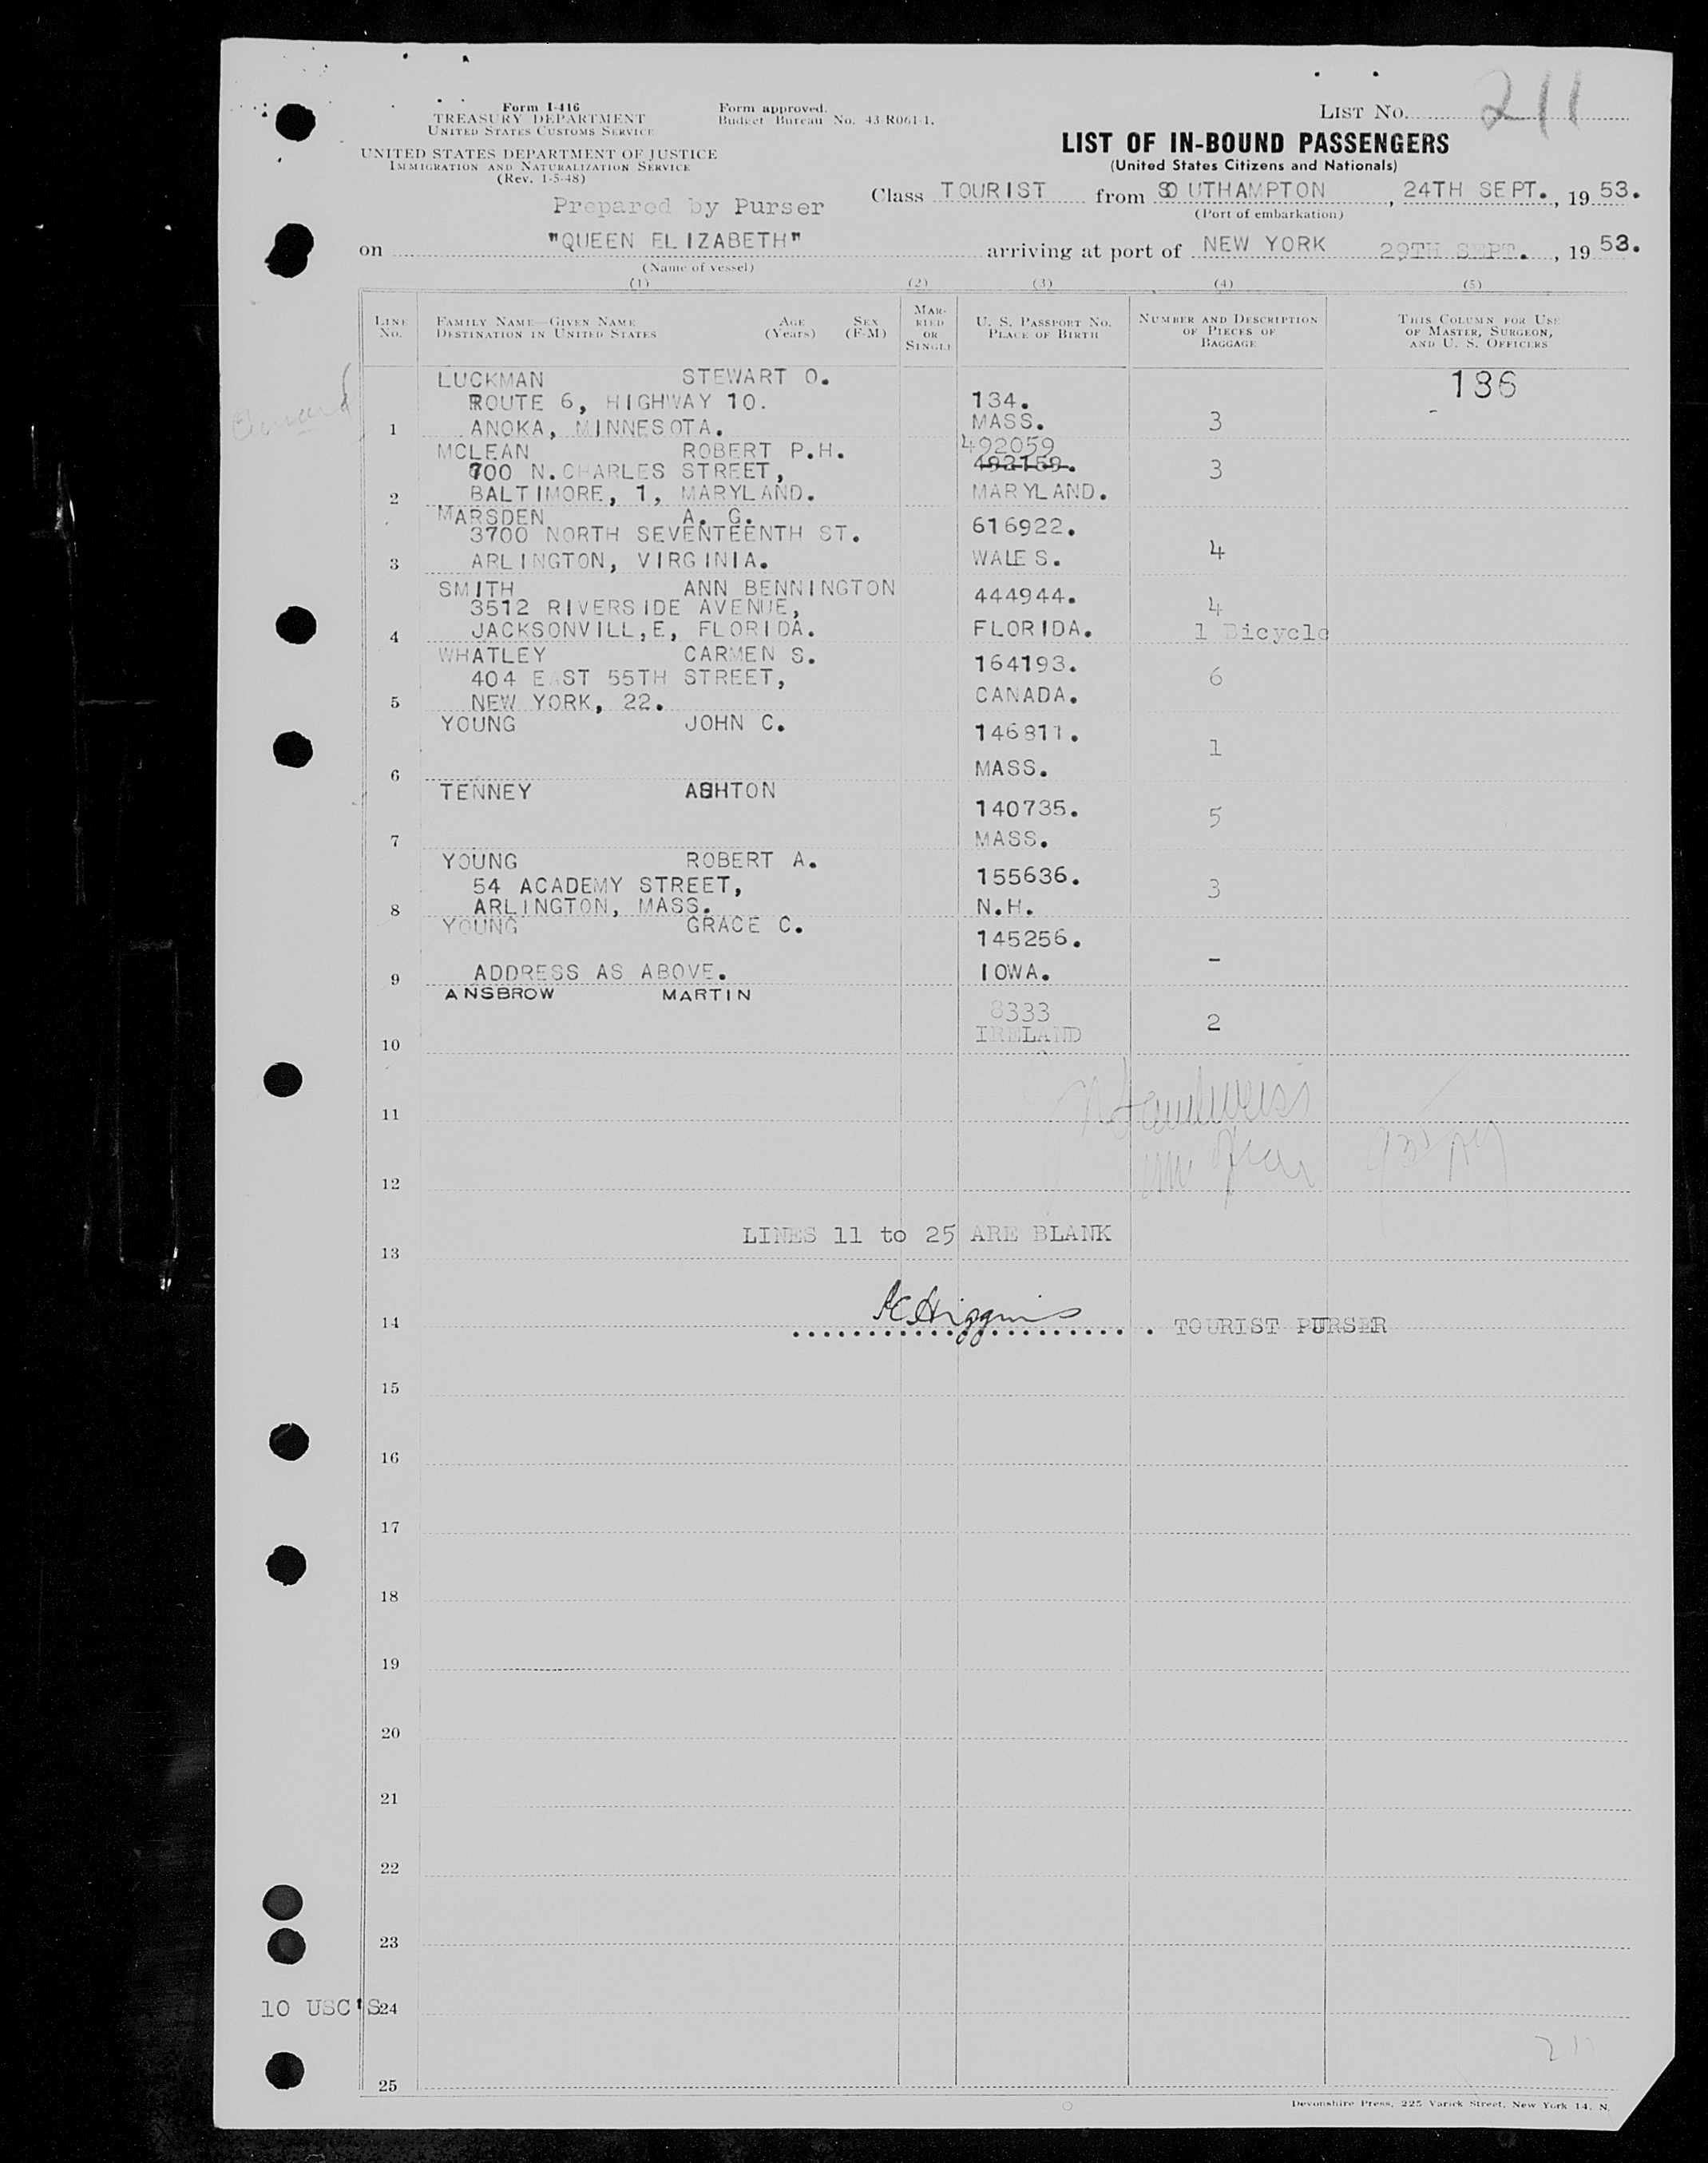 Form I-416
TREASURY DEPARTMENT
UNITED STATES CUSTOMS SERVICE
Form approved.
Budget Bureau No. 43-R061-1.
LIST NO. 211
UNITED STATES DEPARTMENT OF JUSTICE
IMMIGRATION AND NATURALIZATION SERVICE
(Rev. 1-5-48)
LIST OF IN-BOUND PASSENGERS
(United States Citizens and Nationals)
Prepared by Purser
Class TOURIST from SOUTHAMPTON, 24TH SEPT., 1953.
(Port of embarkation)
on "QUEEN ELIZABETH" arriving at port of NEW YORK 29TH SEPT., 1953.
(Name of vessel)
(1) (2) (3) (4) (5)
LINE NO.
FAMILY NAME—GIVEN NAME
DESTINATION IN UNITED STATES
AGE (Years)
SEX (F-M)
MARRIED OR SINGLE
U. S. PASSPORT NO.
PLACE OF BIRTH
NUMBER AND DESCRIPTION OF PIECES OF BAGGAGE
THIS COLUMN FOR USE OF MASTER, SURGEON, AND U. S. OFFICERS
LUCKMAN STEWART O. 136
ROUTE 6, HIGHWAY 10. 134.
1 ANOKA, MINNESOTA. MASS. 3
MCLEAN ROBERT P.H. 492059
700 N.CHARLES STREET, 492159. 3
2 BALTIMORE, 1, MARYLAND. MARYLAND.
MARSDEN A. G.
3700 NORTH SEVENTEENTH ST. 616922.
3 ARLINGTON, VIRGINIA. WALES. 4
SMITH ANN BENNINGTON
3512 RIVERSIDE AVENUE, 444944. 4
4 JACKSONVILL,E, FLORIDA. FLORIDA. 1 Bicycle
WHATLEY CARMEN S. 164193.
404 E ST 55TH STREET, 6
5 NEW YORK, 22. CANADA.
YOUNG JOHN C. 146811.
1
6 MASS.
TENNEY ASHTON
140735. 5
7 MASS.
YOUNG ROBERT A.
54 ACADEMY STREET, 155636. 3
8 ARLINGTON, MASS. N.H.
YOUNG GRACE C.
145256. -
9 ADDRESS AS ABOVE. IOWA.
ANSBROW MARTIN
8333
10 IRELAND 2
11
12
LINES 11 to 25 ARE BLANK
13
14 TOURIST PURSER
15
16
17
18
19
20
21
22
23
10 USC'S 24
211
25
Devonshire Press, 225 Varick Street, New York 14, N.